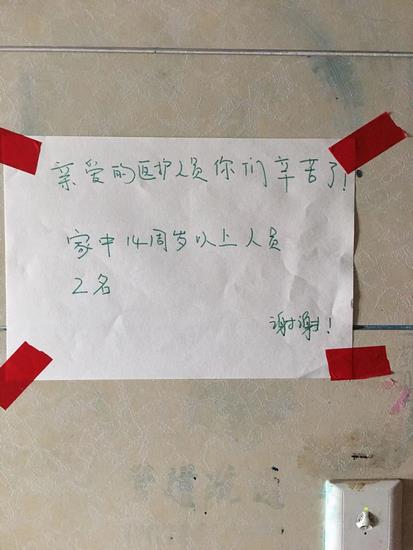 亲爱的医护人员你们辛苦了!
家中14周岁以上人员
2名
谢谢!